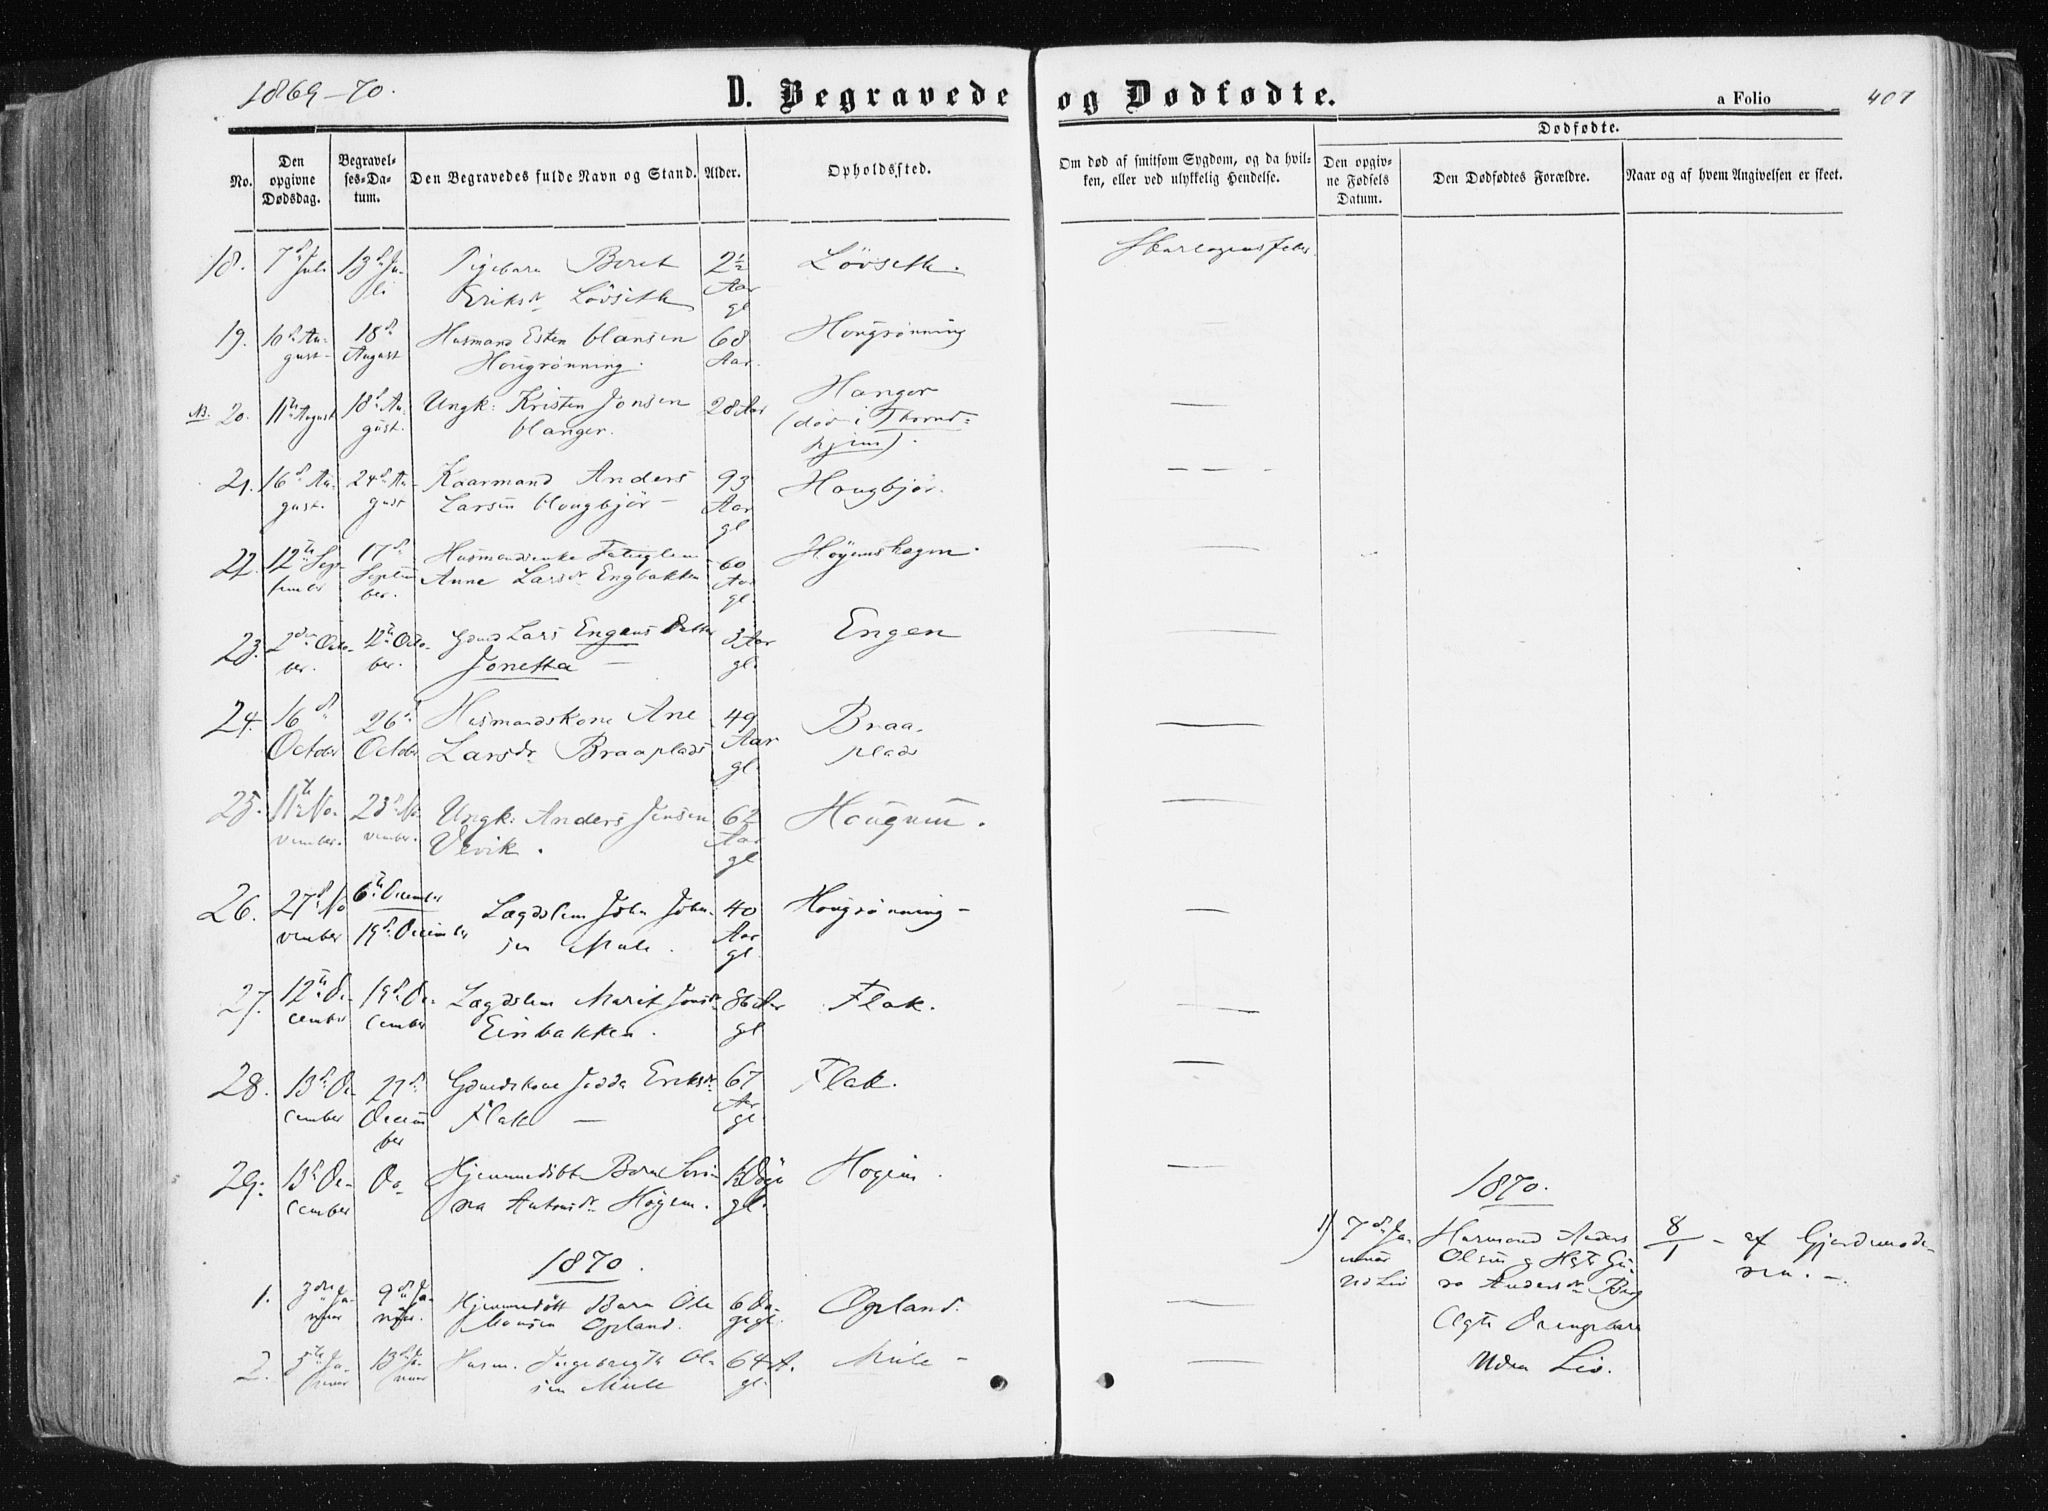 1869-70.
D. Begravede og Dødfødte.
a Folio
407
No.
Den opgivne Dødsdag.
Begravelses-Datum.
Den Begravedes fulde Navn og Stand.
Alder.
Opholdssted.
Om død af smitsom Sygdom, og da hvilken, eller ved ulykkelig Hendelse.
Dødfødte.
Den opgivne Fødsels Datum.
Den Dødfødtes Forældre.
Naar og af hvem Angivelsen er skeet.
18. 7d Juli 13d Juli Pigebarn Beret Eriksdr Lövseth 2½ Aar gl Lövseth. Skarlagensfeber
19. 16d August 18d August Husmand Esten Hansen Hougrønning. 68 Aar. Hougrønning
NB. 20. 11te August 18d August. Ungk: Kristen Jonsen Hanger. 28 Aar Hanger (död i Thrond-hjem).
21. 16d August. 24d August Kaarmand Anders Larsen Hougbjör 93 Aar gl Hougbjör.
22. 12te September 17d September. Husmandsenke Fatiglem Anne Larsdr Engbakken 60 Aar gl. Höyemshagen.
23. 2den October. 12te October. Gmd Lars Engens Datter Jonetta 3 Aar gl. Engen
24. 16d October 26d October Husmandskone Ane Larsdr Braaplads 49 Aar gl. Braaplads
25. 11te November. 23d November. Ungk: Anders Jensen Vevik. 62 Aar gl Hougum.
26. 27d November 6te December 19d December Lægdslem John Johnsen Mule. 40 Aar gl. Hougrønning
27. 12te December 19d December Lægdslem Marit Jonsdr Einbakken. 86 Aar gl Flak.
28. 13d December 27d December Gmdskone Jodda Eriksdr Flak 67 Aar gl. Flak.
29. 13d December Do Hjemmedöbte Barn Antonsdr Höyem. gl. Hogem.
1870.
1. 3die Januar 9d Januar. Hjemmedöbt Barn Ole Monsen Opland. 6 Dage gl. Opland.
2. 5te Januar 13d Januar Husm. Ingebrigt Olsen Mule 64 A. gl. Mule
1870.
1) 7d Januar Husmand Anders Olsen og Hst Guro Andersdr Berg Ægte Drengebarn Uden Liv. 8/1 - af Gjordemoderen.